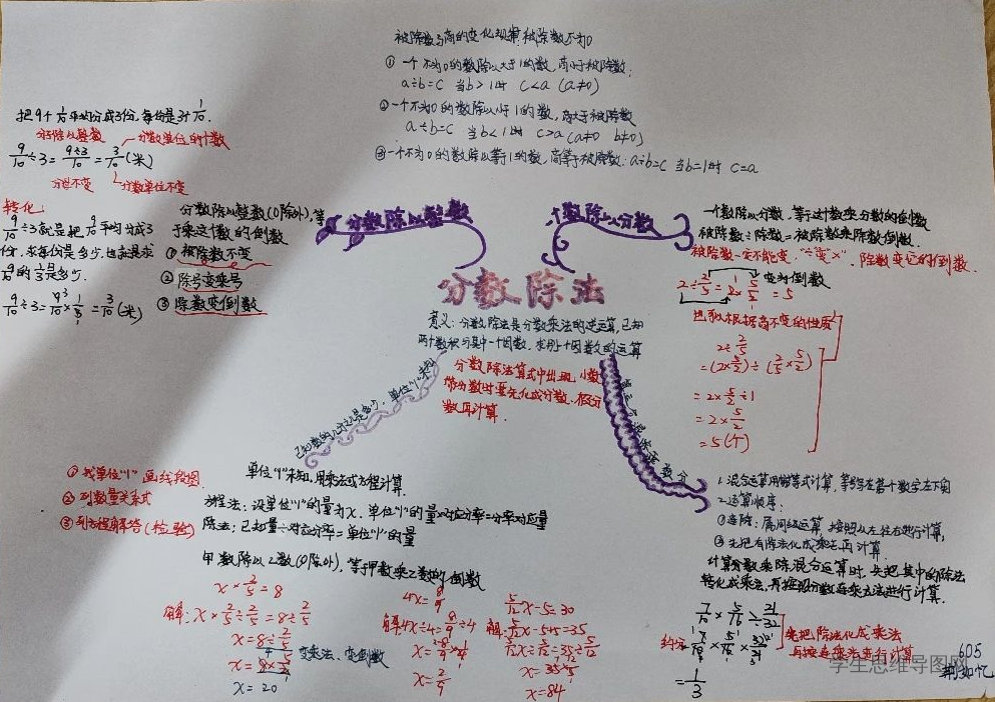 被除数与商的变化规律:被除数不为0
① 一个不为0的数除以大于1的数,商小于被除数:
a÷b=c 当b>1时 c<a (a≠0)
②一个不为0的数除以小于1的数,商大于被除数
a÷b=c 当b<1时 c>a (a≠0 b≠0)
③一个不为0的数除以等于1的数,商等于被除数:a÷b=c 当b=1时 c=a
把9个1/10平均分成3份,每份是3个1/10.
分子除以整数 分数单位的个数
9/10÷3=9÷3/10=3/10(米)
分母不变 分数单位不变
转化:
9/10÷3就是把9/10平均分成3
份,求每份是多少,也就是求
9/10的1/3是多少.
9/10÷3=9/10×1/3=3/10(米)
分数除以整数
分数除以整数(0除外),等
于乘这个数的倒数
① 被除数不变
② 除号变乘号
③ 除数变倒数
一个数除以分数
一个数除以分数,等于这个数乘分数的倒数
被除数÷除数=被除数乘除数倒数.
被除数一定不能变,"÷"变"×",除数变它的倒数.
2÷2/5=2×5/2=5 变为倒数
也可以根据商不变的性质
2÷2/5
=(2×5/2)÷(2/5×5/2)
=2×5/2÷1
=2×5/2
=5(个)
分数除法
意义:分数除法是分数乘法的逆运算,已知
两个数积与其中一个因数,求另一个因数的运算
分数除法算式中出现,小数
带分数时要先化成分数、假分
数再计算.
已知一个数的几分之几是多少,单位"1"未知
①找单位"1"画线段图
② 列数量关系式
③ 列方程解答(检验)
单位"1"未知,用乘法或方程计算.
方程法:设单位"1"的量为x,单位"1"的量×对应分率=分率对应量
除法:已知量÷对应分率=单位"1"的量
甲数除以乙数(0除外),等于甲数乘乙数的倒数
x×2/5=8
解:x×2/5÷2/5=8÷2/5
x=8÷2/5
x=8×5/2 变乘法、变倒数
x=20
4x=8/9
解:4x÷4=8/9÷4
x=8/9×1/4
x=2/9
5/12x-5=30
解:5/12x-5+5=35
5/12x÷5/12=35÷5/12
x=84
1.混合运算用脱等式计算,等号写在首个数字左下角
2.运算顺序:
①连除:属同级运算,按照从左往右进行计算;
②先把有除法化成乘法再计算
计算分数乘除混合运算时,先把其中的除法
转化成乘法,再按照分数连乘方法进行计算.
7/10×5/16÷21/32
约分
先把除法化成乘法
再按连乘法进行计算
=1/3
605
学生思维导图网